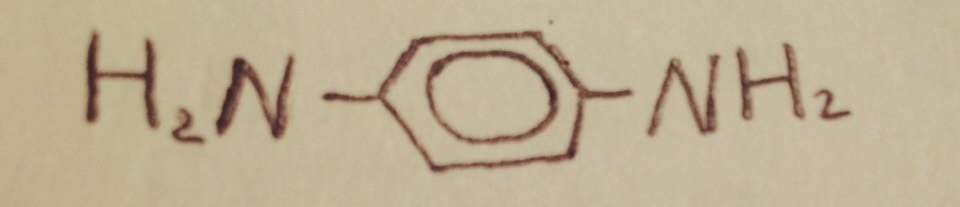 H₂N NH₂